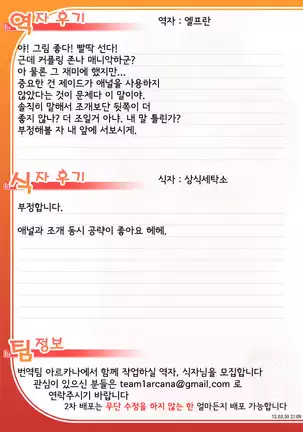 역자 후기
역자 : 엘프란
야! 그림 좋다! 빨딱 선다!
근데 커플링 존나 매니악하군?
아 물론 그 재미에 했지만...
중요한 건 제이드가 애널을 사용하지
않았다는 것이 문제다 이 말이야.
솔직히 말해서 조개보단 뒷쪽이 더
좋지 않나? 더 조일거 아냐. 내 말 틀린가?
부정해볼 자 내 앞에 서보시게.
식자 후기
식자 : 상식세탁소
부정합니다.
애널과 조개 동시 공략이 좋아요 헤헤.
팀 정보
번역팀 아르카나에서 함께 작업하실 역자, 식자님을 모집합니다
관심이 있으신 분들은 team1arcana@gmail.com 로
연락주시기 바랍니다
2차 배포는 무단 수정을 하지 않는 한 얼마든지 배포 가능합니다
12.03.30 21:09